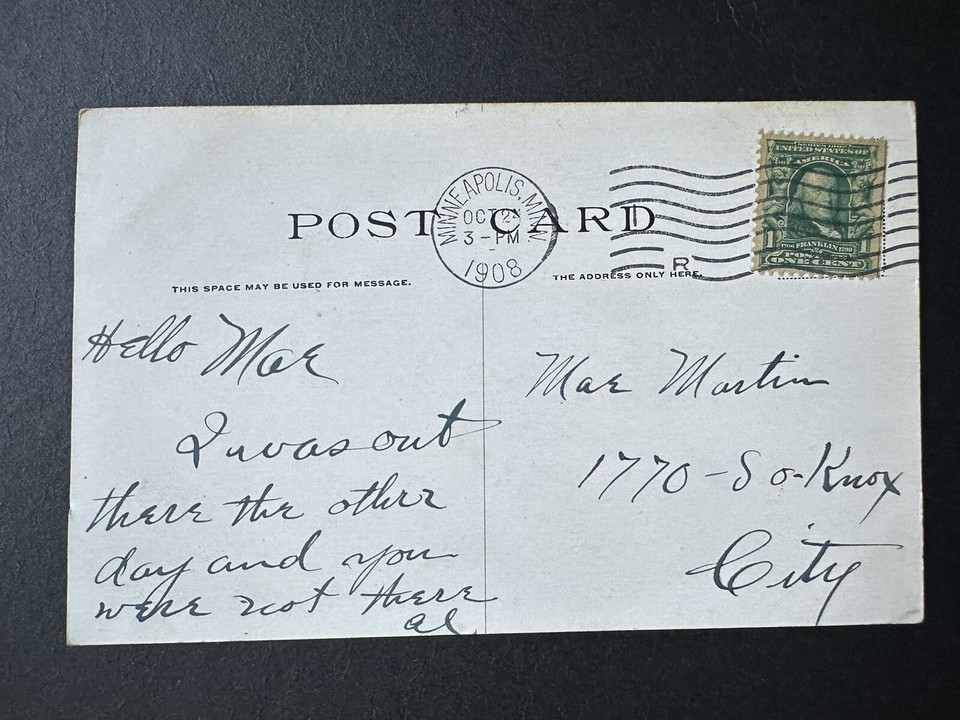 SERIES 1902
UNITED STATES OF
AMERICA
1 1706 FRANKLIN 1790 1
POSTAGE
ONE CENT
MINNEAPOLIS, MINN
OCT
3-PM
1908
R
POST CARD
THIS SPACE MAY BE USED FOR MESSAGE.
THE ADDRESS ONLY HERE.
Hello Mae
I was out
there the other
day and you
were not there
al
Mae Martin
1770-So-Knox
City